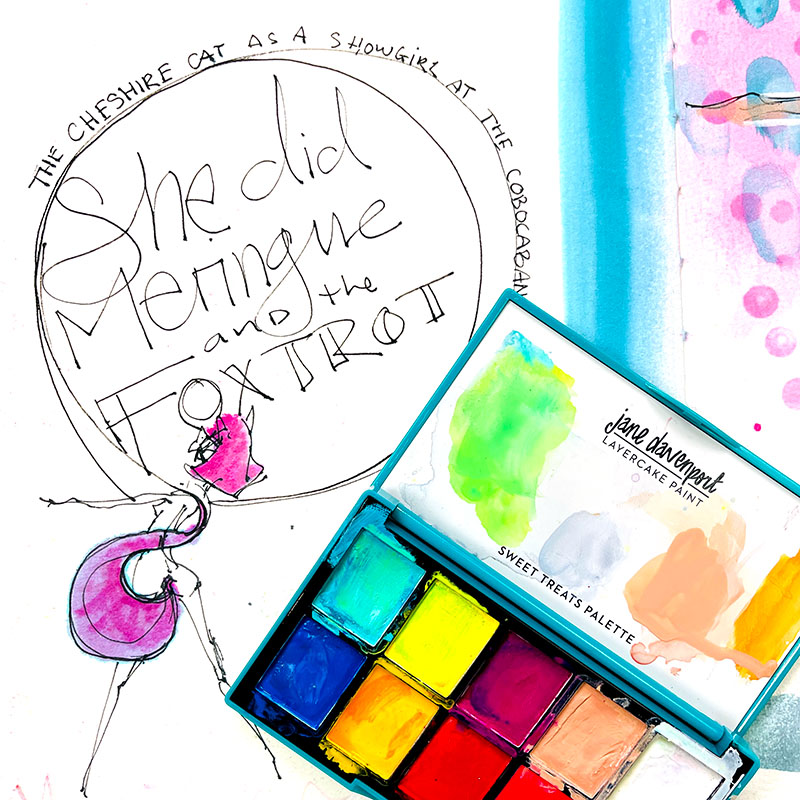 THE CHESHIRE CAT AS A SHOWGIRL AT THE COBOCABAN
She did
Meringue
and the
FOXTROT
jane davenport
LAYERCAKE PAINT
SWEET TREATS PALETTE